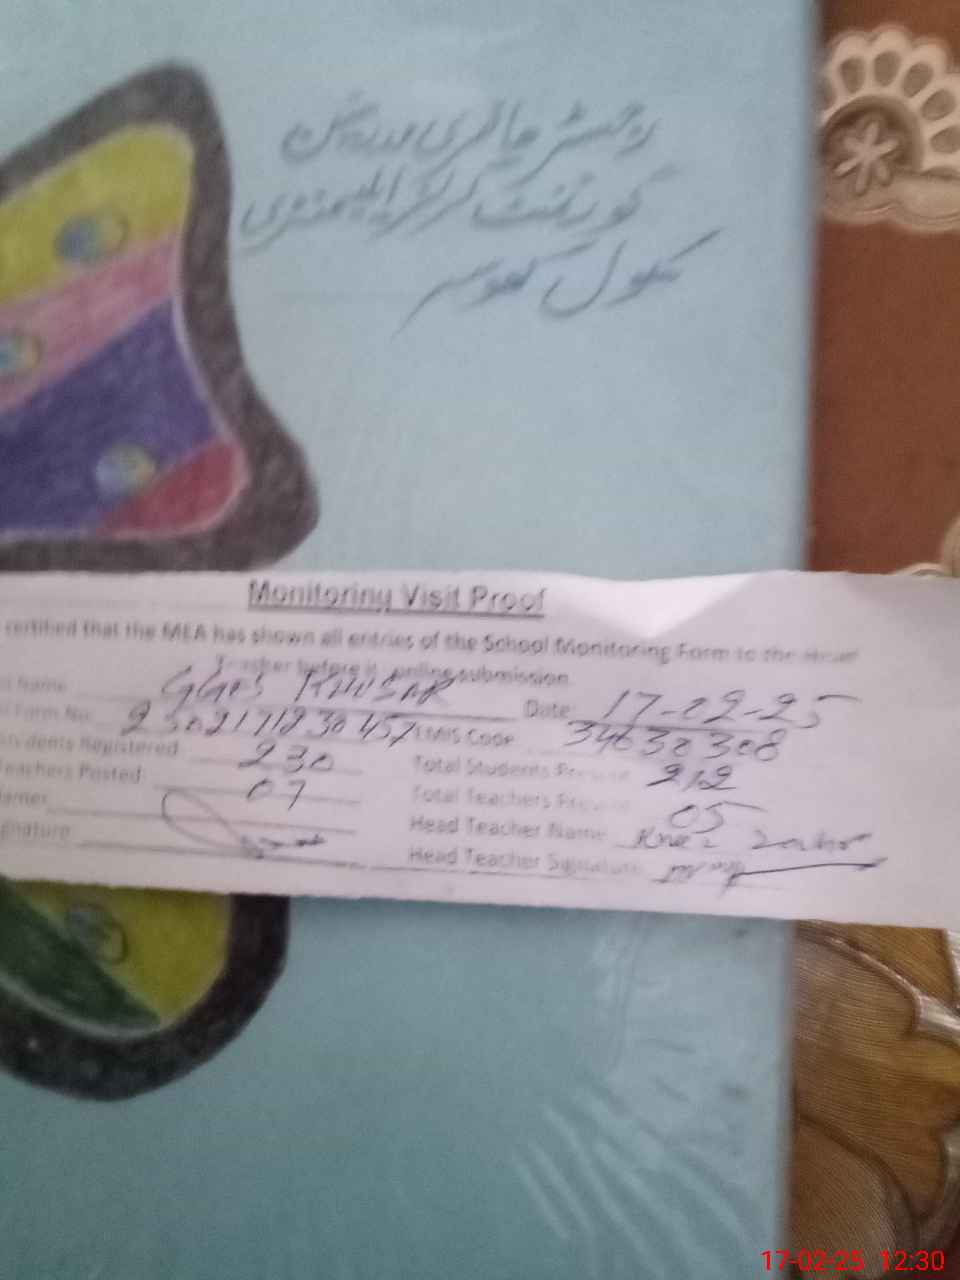 رجسٹر حاضری مدرسین
گورنمنٹ گرلز ایلیمنٹری
سکول
Monitoring Visit Proof
certified that the MEA has shown all entries of the School Monitoring Form to the Head
Teacher before it online submission
Name GGES Date: 17-02-25
Form No. 2502171230457 EMIS Code 34630308
Students Registered: 230 Total Students Present 212
Teachers Posted: 07 Total Teachers Present 05
Name: Head Teacher Name
Signature Head Teacher Signature
17-02-25 12:30